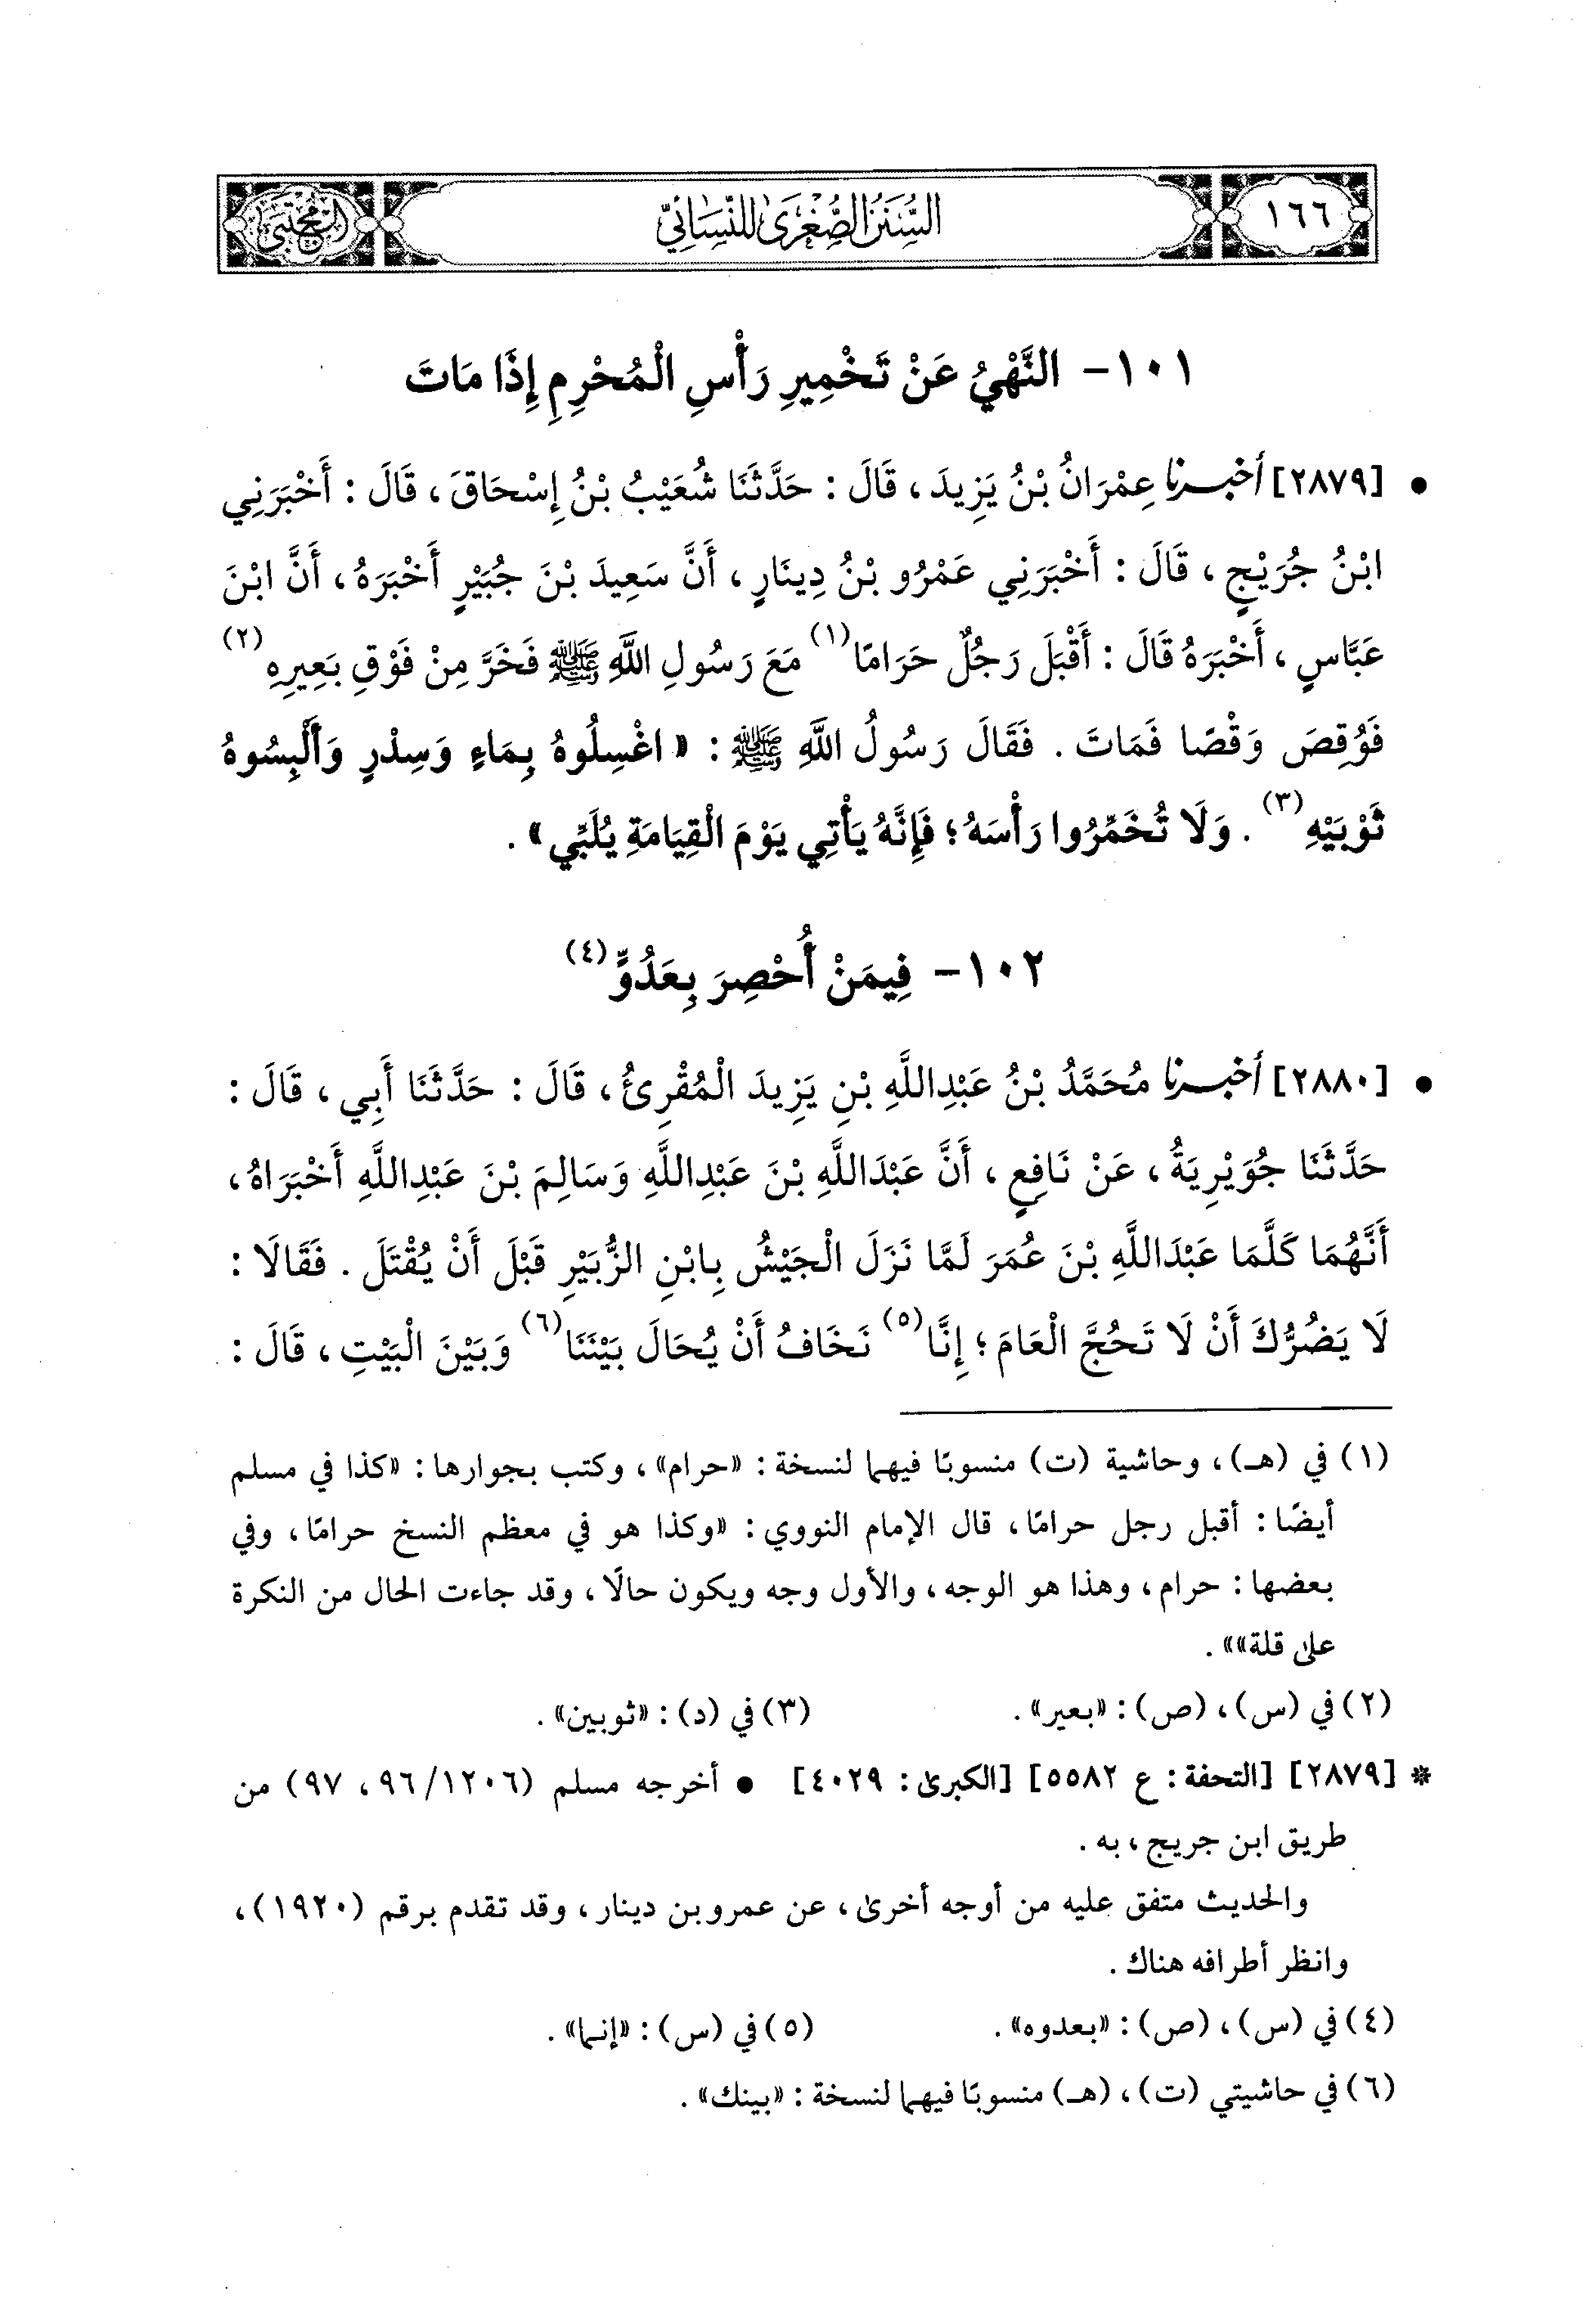 ١٦٦
السُّنَنُ الصُّغْرَىٰ لِلنَّسَائِيِّ
المجتبى
١٠١- النَّهْيُ عَنْ تَخْمِيرِ رَأْسِ الْمُحْرِمِ إِذَا مَاتَ
• [٢٨٧٩] أخبرنا عِمْرَانُ بْنُ يَزِيدَ، قَالَ: حَدَّثَنَا شُعَيْبُ بْنُ إِسْحَاقَ، قَالَ: أَخْبَرَنِي
ابْنُ جُرَيْجٍ، قَالَ: أَخْبَرَنِي عَمْرُو بْنُ دِينَارٍ، أَنَّ سَعِيدَ بْنَ جُبَيْرٍ أَخْبَرَهُ، أَنَّ ابْنَ
عَبَّاسٍ، أَخْبَرَهُ قَالَ: أَقْبَلَ رَجُلٌ حَرَامًا(١) مَعَ رَسُولِ اللَّهِ ﷺ فَخَرَّ مِنْ فَوْقِ بَعِيرِهِ(٢)
فَوُقِصَ وَقْصًا فَمَاتَ. فَقَالَ رَسُولُ اللَّهِ ﷺ: «اغْسِلُوهُ بِمَاءٍ وَسِدْرٍ وَأَلْبِسُوهُ
ثَوْبَيْهِ(٣). وَلَا تُخَمِّرُوا رَأْسَهُ؛ فَإِنَّهُ يَأْتِي يَوْمَ الْقِيَامَةِ يُلَبِّي».
١٠٢- فِيمَنْ أُحْصِرَ بِعَدُوٍّ(٤)
• [٢٨٨٠] أخبرنا مُحَمَّدُ بْنُ عَبْدِاللَّهِ بْنِ يَزِيدَ الْمُقْرِئُ، قَالَ: حَدَّثَنَا أَبِي، قَالَ:
حَدَّثَنَا جُوَيْرِيَةُ، عَنْ نَافِعٍ، أَنَّ عَبْدَاللَّهِ بْنَ عَبْدِاللَّهِ وَسَالِمَ بْنَ عَبْدِاللَّهِ أَخْبَرَاهُ،
أَنَّهُمَا كَلَّمَا عَبْدَاللَّهِ بْنَ عُمَرَ لَمَّا نَزَلَ الْجَيْشُ بِابْنِ الزُّبَيْرِ قَبْلَ أَنْ يُقْتَلَ. فَقَالَا:
لَا يَضُرُّكَ أَنْ لَا تَحُجَّ الْعَامَ؛ إِنَّا(٥) نَخَافُ أَنْ يُحَالَ بَيْنَنَا(٦) وَبَيْنَ الْبَيْتِ، قَالَ:
(١) في (هـ)، وحاشية (ت) منسوبًا فيهما لنسخة: «حرام»، وكتب بجوارها: «كذا في مسلم
أيضًا: أقبل رجل حرامًا، قال الإمام النووي: «وكذا هو في معظم النسخ حرامًا، وفي
بعضها: حرام، وهذا هو الوجه، والأول وجه ويكون حالًا، وقد جاءت الحال من النكرة
على قلة»».
(٢) في (س)، (ص): «بعير». (٣) في (د): «ثوبين».
* [٢٨٧٩] [التحفة: ع ٥٥٨٢] [الكبرى: ٤٠٢٩] • أخرجه مسلم (٩٦/١٢٠٦، ٩٧) من
طريق ابن جريج، به.
والحديث متفق عليه من أوجه أخرى، عن عمرو بن دينار، وقد تقدم برقم (١٩٢٠)،
وانظر أطرافه هناك.
(٤) في (س)، (ص): «بعدوه». (٥) في (س): «إنما».
(٦) في حاشيتي (ت)، (هـ) منسوبًا فيهما لنسخة: «بينك».